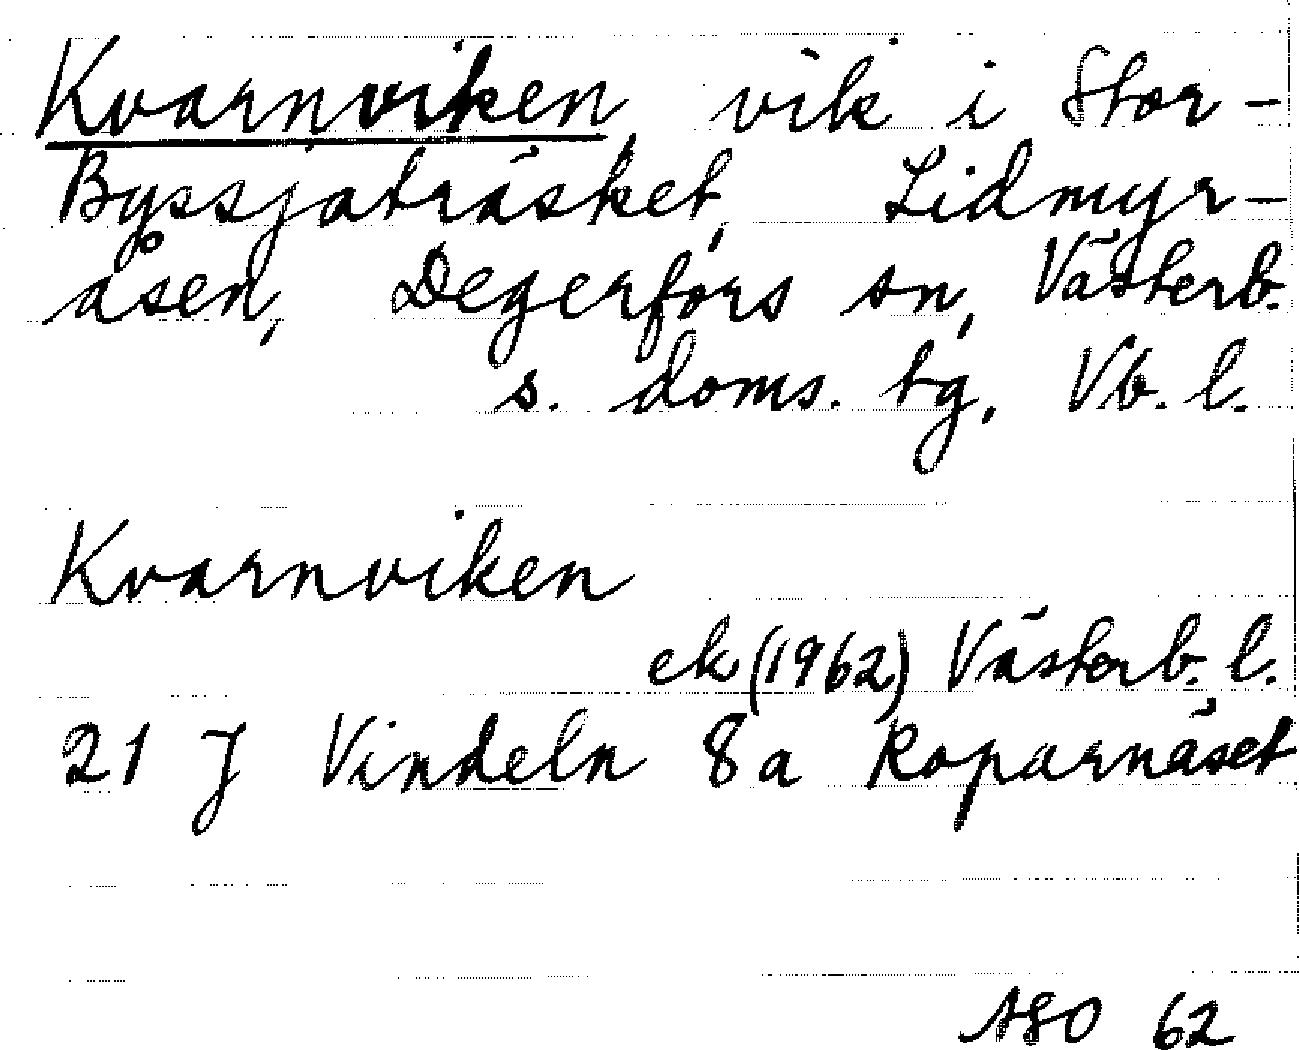 Kvarnviken, vik i Stor-
Byssjaträsket, Lidmyr-
åsen, Degerfors sn, Västerb.
s. doms. tg, Vb. l.
Kvarnviken
ek (1962) Västerb. l.
21 J Vindeln 8a Roparnäset
ASO 62